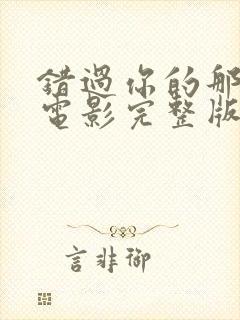 錯過你的那
電影完整版
言非御